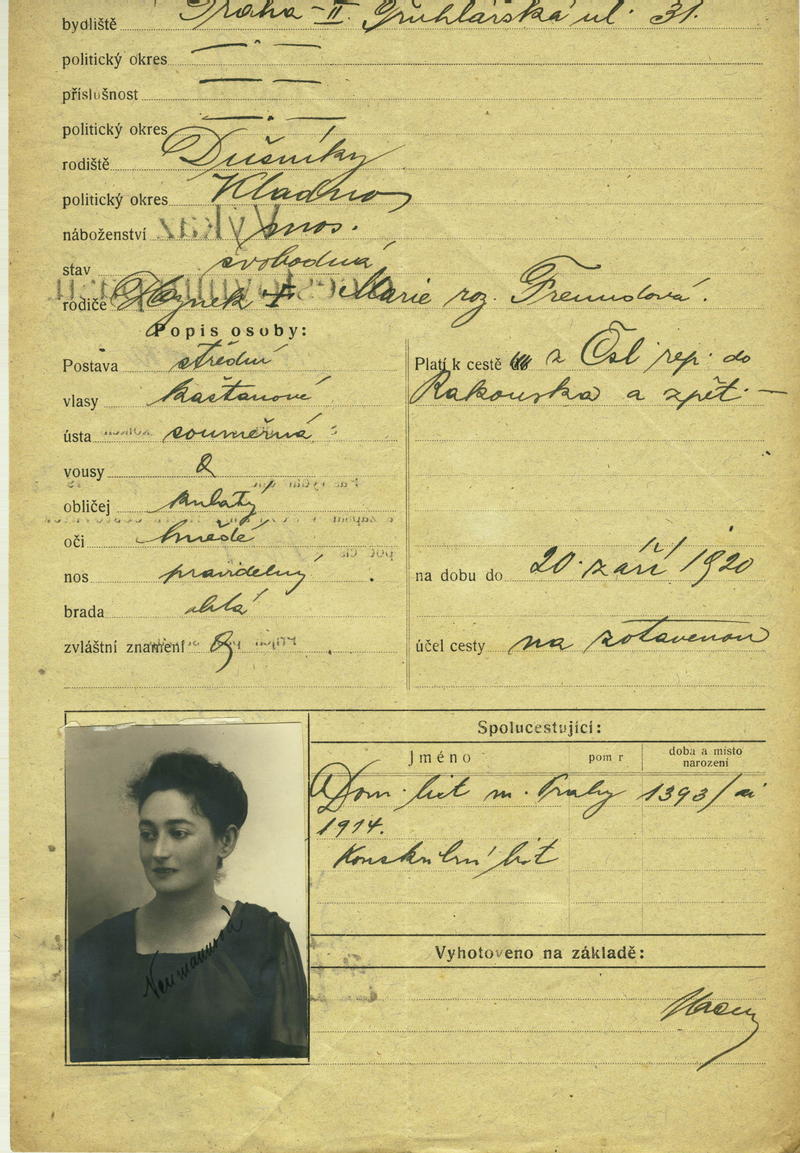 bydliště Praha-II. Truhlářská ul. 31.
politický okres — . —
příslušnost — —
politický okres — . —
rodiště Dušníky
politický okres Kladno
náboženství mos.
stav svobodná
rodiče Hynek † Marie roz. Freundová.
Popis osoby:
Postava střední
vlasy kaštanové
ústa souměrná
vousy
obličej kulatý
oči hnědé
nos pravidelný
brada oblá
zvláštní znamení
Platí k cestě z Čsl rep. do
Rakouska a zpět. —
na dobu do 20. září 1920
účel cesty na zotavenou
Spolucestující:
Jméno
pom r
doba a místo
narození
Dom. list m. Prahy 1393/ai
1914.
Konskribní list
Vyhotoveno na základě:
Neumannová